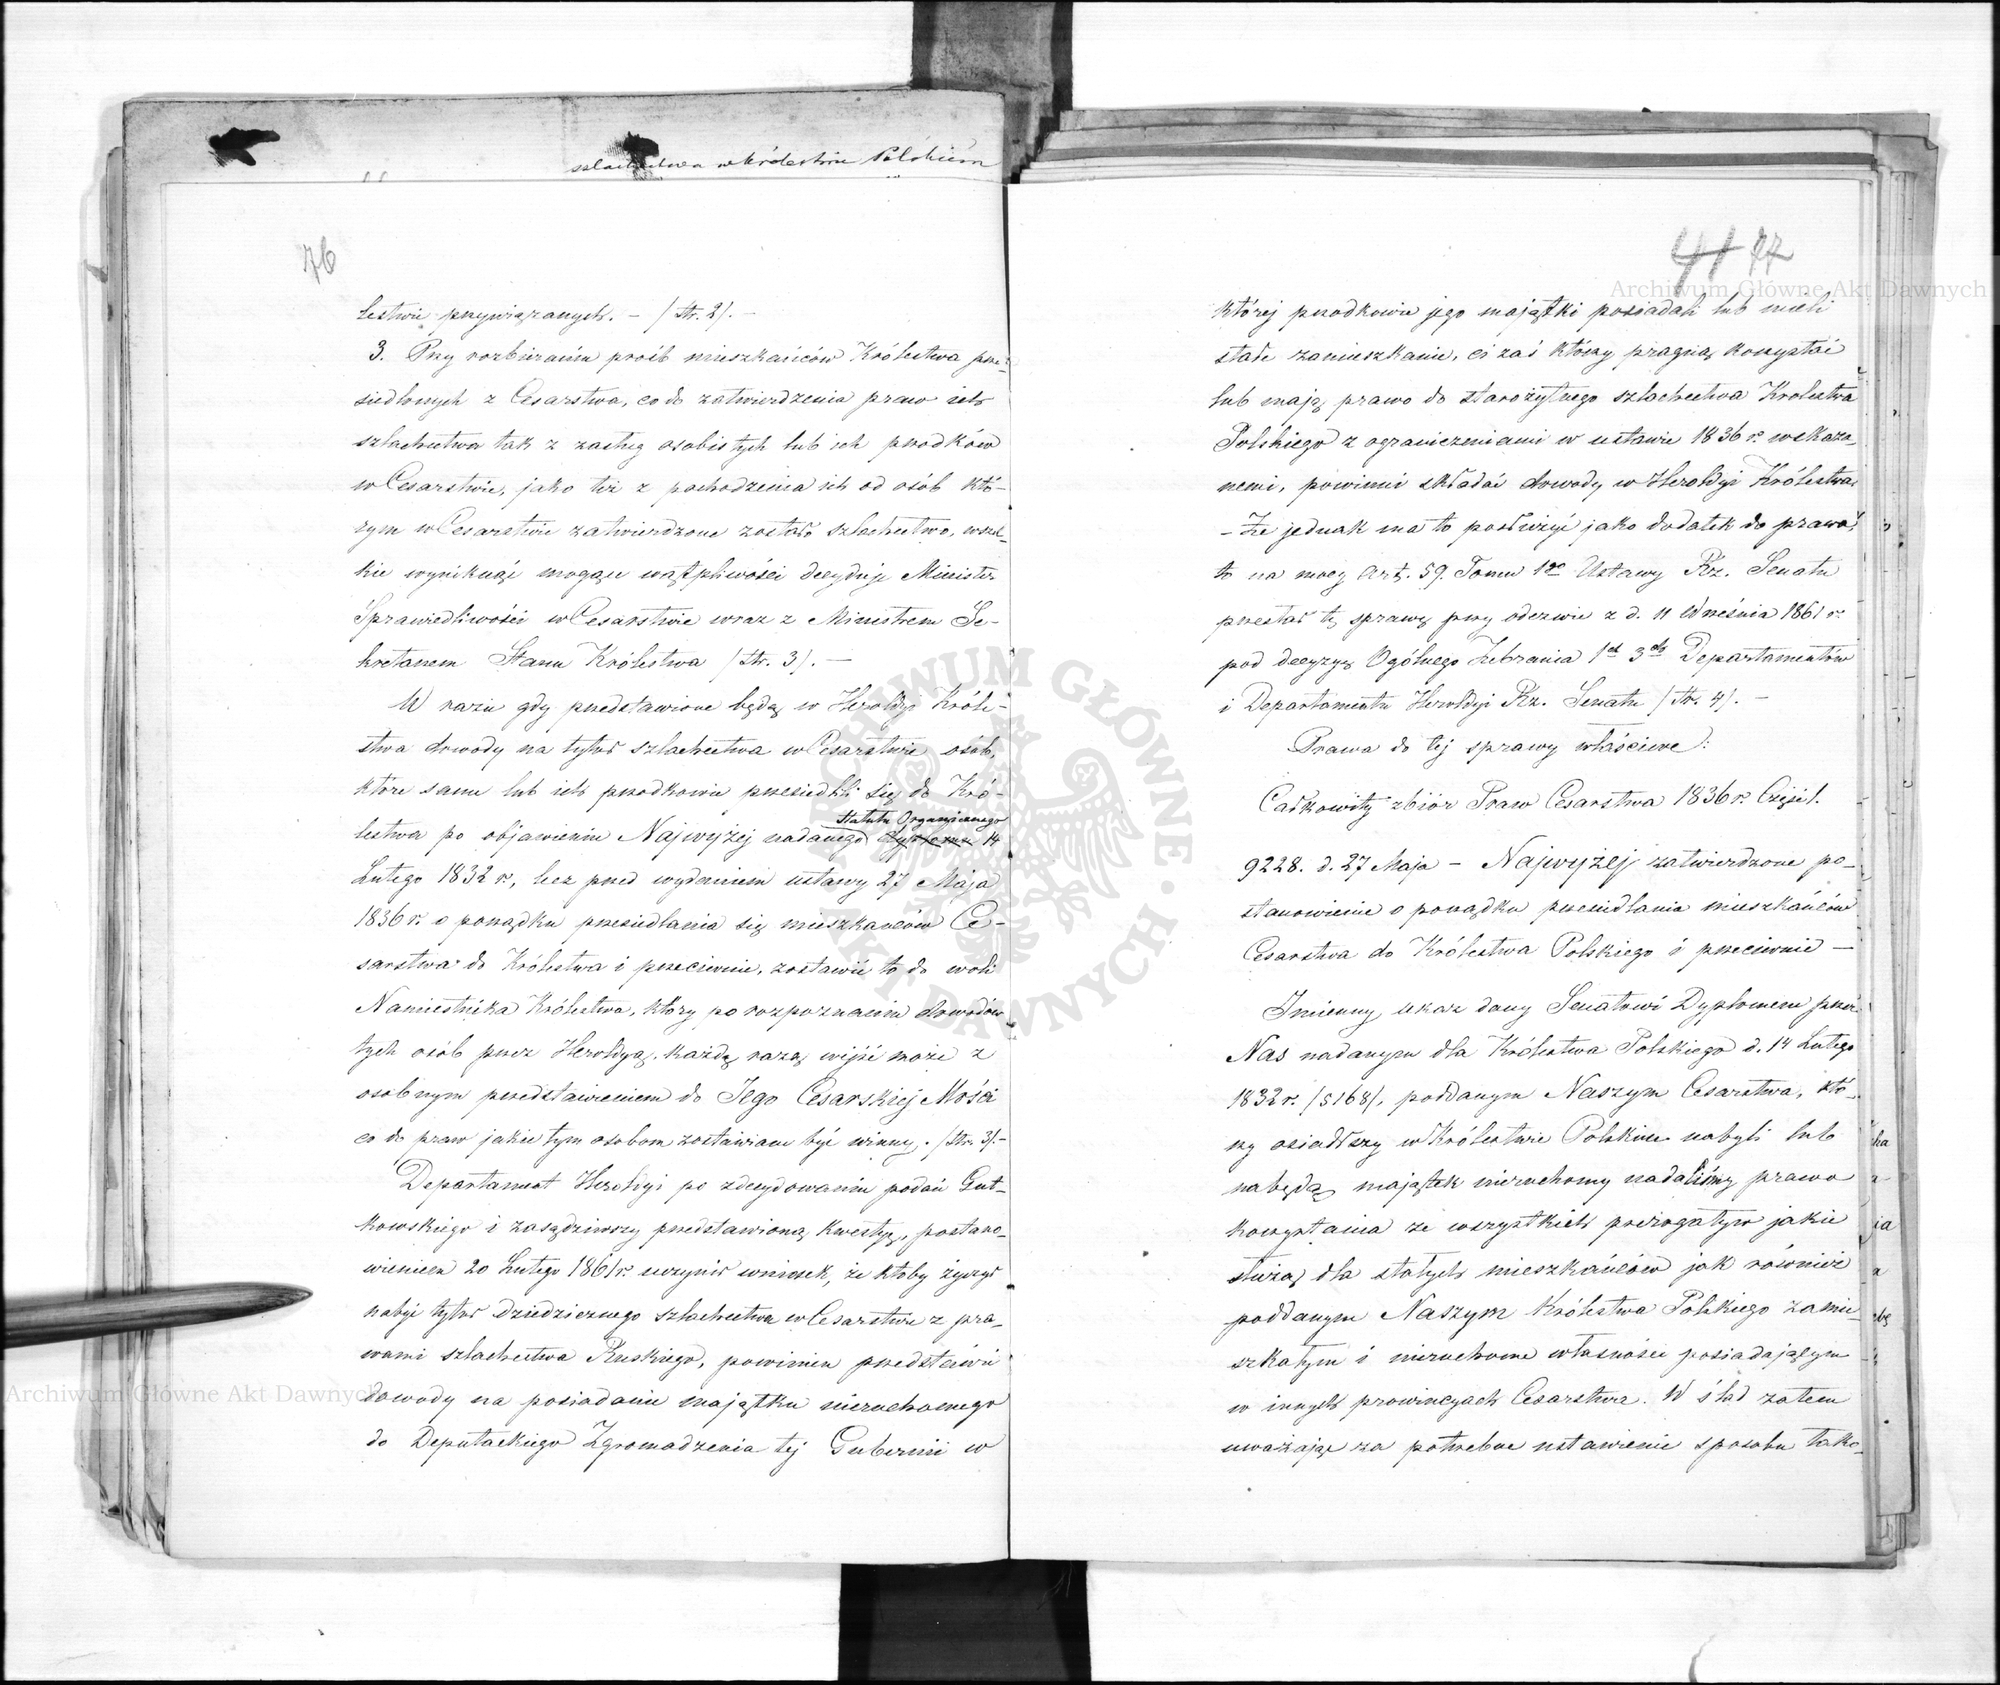 szlachectwa w Królestwie Polskiém
76
lestwie przywiązanych. – /Str. 2/. –
3. Przy rozbieraniu próśb mieszkańców Królestwa prze-
siedlonych z Cesarstwa, co do zatwierdzenia praw ich
szlachectwa tak z zasług osobistych lub ich przodków
w Cesarstwie, jako też z pochodzenia ich od osób któ-
rym w Cesarstwie zatwierdzone zostało szlachectwo, wszel-
kie wyniknąć mogące wątpliwości decyduje Minister
Sprawiedliwości w Cesarstwie wraz z Ministrem Se-
kretarzem Stanu Królestwa /Str. 3/. –
W razie gdy przedstawione będą w Heroldyi Króle-
stwa dowody na tytuł szlachectwa w Cesarstwie osób,
które same lub ich przodkowie przesiedlili się do Kró-
Statutu Organicznego
lestwa po objawieniu Najwyżej nadanego dyplomu 14
Lutego 1832 r., lecz przed wydaniem ustawy 27 Maja
1836 r. o porządku przesiedlania się mieszkańców Ce-
sarstwa do Królestwa i przeciwnie, zostawić to do woli
Namiestnika Królestwa, który po rozpoznaniu dowodów
tych osób przez Heroldyą, każdą razą wyjść może z
osobnym przedstawieniem do Jego Cesarskiej Mości
co do praw jakie tym osobom zostawione być winny. /Str. 3/. –
Departament Heroldyi po zdecydowaniu podań Gut-
kowskiego i zasądziwszy przedstawioną kwestyę, postano-
wieniem 20 Lutego 1861 r. uczynił wniosek, że ktoby życzył
nabyć tytuł dziedzicznego szlachectwa w Cesarstwie z pra-
wami szlachectwa Ruskiego, powinien przedstawić
dowody na posiadanie majątku nieruchomego
do Deputackiego Zgromadzenia tej Gubernii w
41 77
której przodkowie jego majątki posiadali lub mieli
stałe zamieszkanie, ci zaś którzy pragną korzystać
lub mają prawo do starożytnego szlachectwa Królestwa
Polskiego z ograniczeniami w ustawie 1836 r. wskaza-
nemi, powinni składać dowody w Heroldyi Królestwa.
– Że jednak ma to posłużyć jako dodatek do prawa,
to na mocy Art. 59. Tomu 1go Ustawy Rz. Senatu
przesłał tę sprawę przy odezwie z d. 11 Września 1861 r.
pod decyzyę Ogólnego Zebrania 1ch 3ch Departamentów
i Departamentu Heroldyi Rz. Senatu /Str. 4/. –
Prawa do tej sprawy właściwe:
Całkowity zbiór Praw Cesarstwa 1836 r. Część 1.
9228. d. 27 Maja – Najwyżej zatwierdzone po-
stanowienie o porządku przesiedlania mieszkańców
Cesarstwa do Królestwa Polskiego i przeciwnie –
Imienny ukaz dany Senatowi Dyplomem przez
Nas nadanym dla Królestwa Polskiego d. 14 Lutego
1832 r. /5168/, poddanym Naszym Cesarstwa, któ-
rzy osiadłszy w Królestwie Polskim nabyli lub
nabędą majątek nieruchomy nadaliśmy prawo
korzystania ze wszystkich prerogatyw jakie
służą dla stałych mieszkańców jak również
poddanym Naszym Królestwa Polskiego zamie-
szkałym i nieruchome własności posiadającym
w innych prowincyach Cesarstwa. W ślad zatem
uważając za potrzebne ustawienie sposobu tako-
Archiwum Główne Akt Dawnych
Archiwum Główne Akt Dawnych
ARCHIWUM GŁÓWNE AKT DAWNYCH